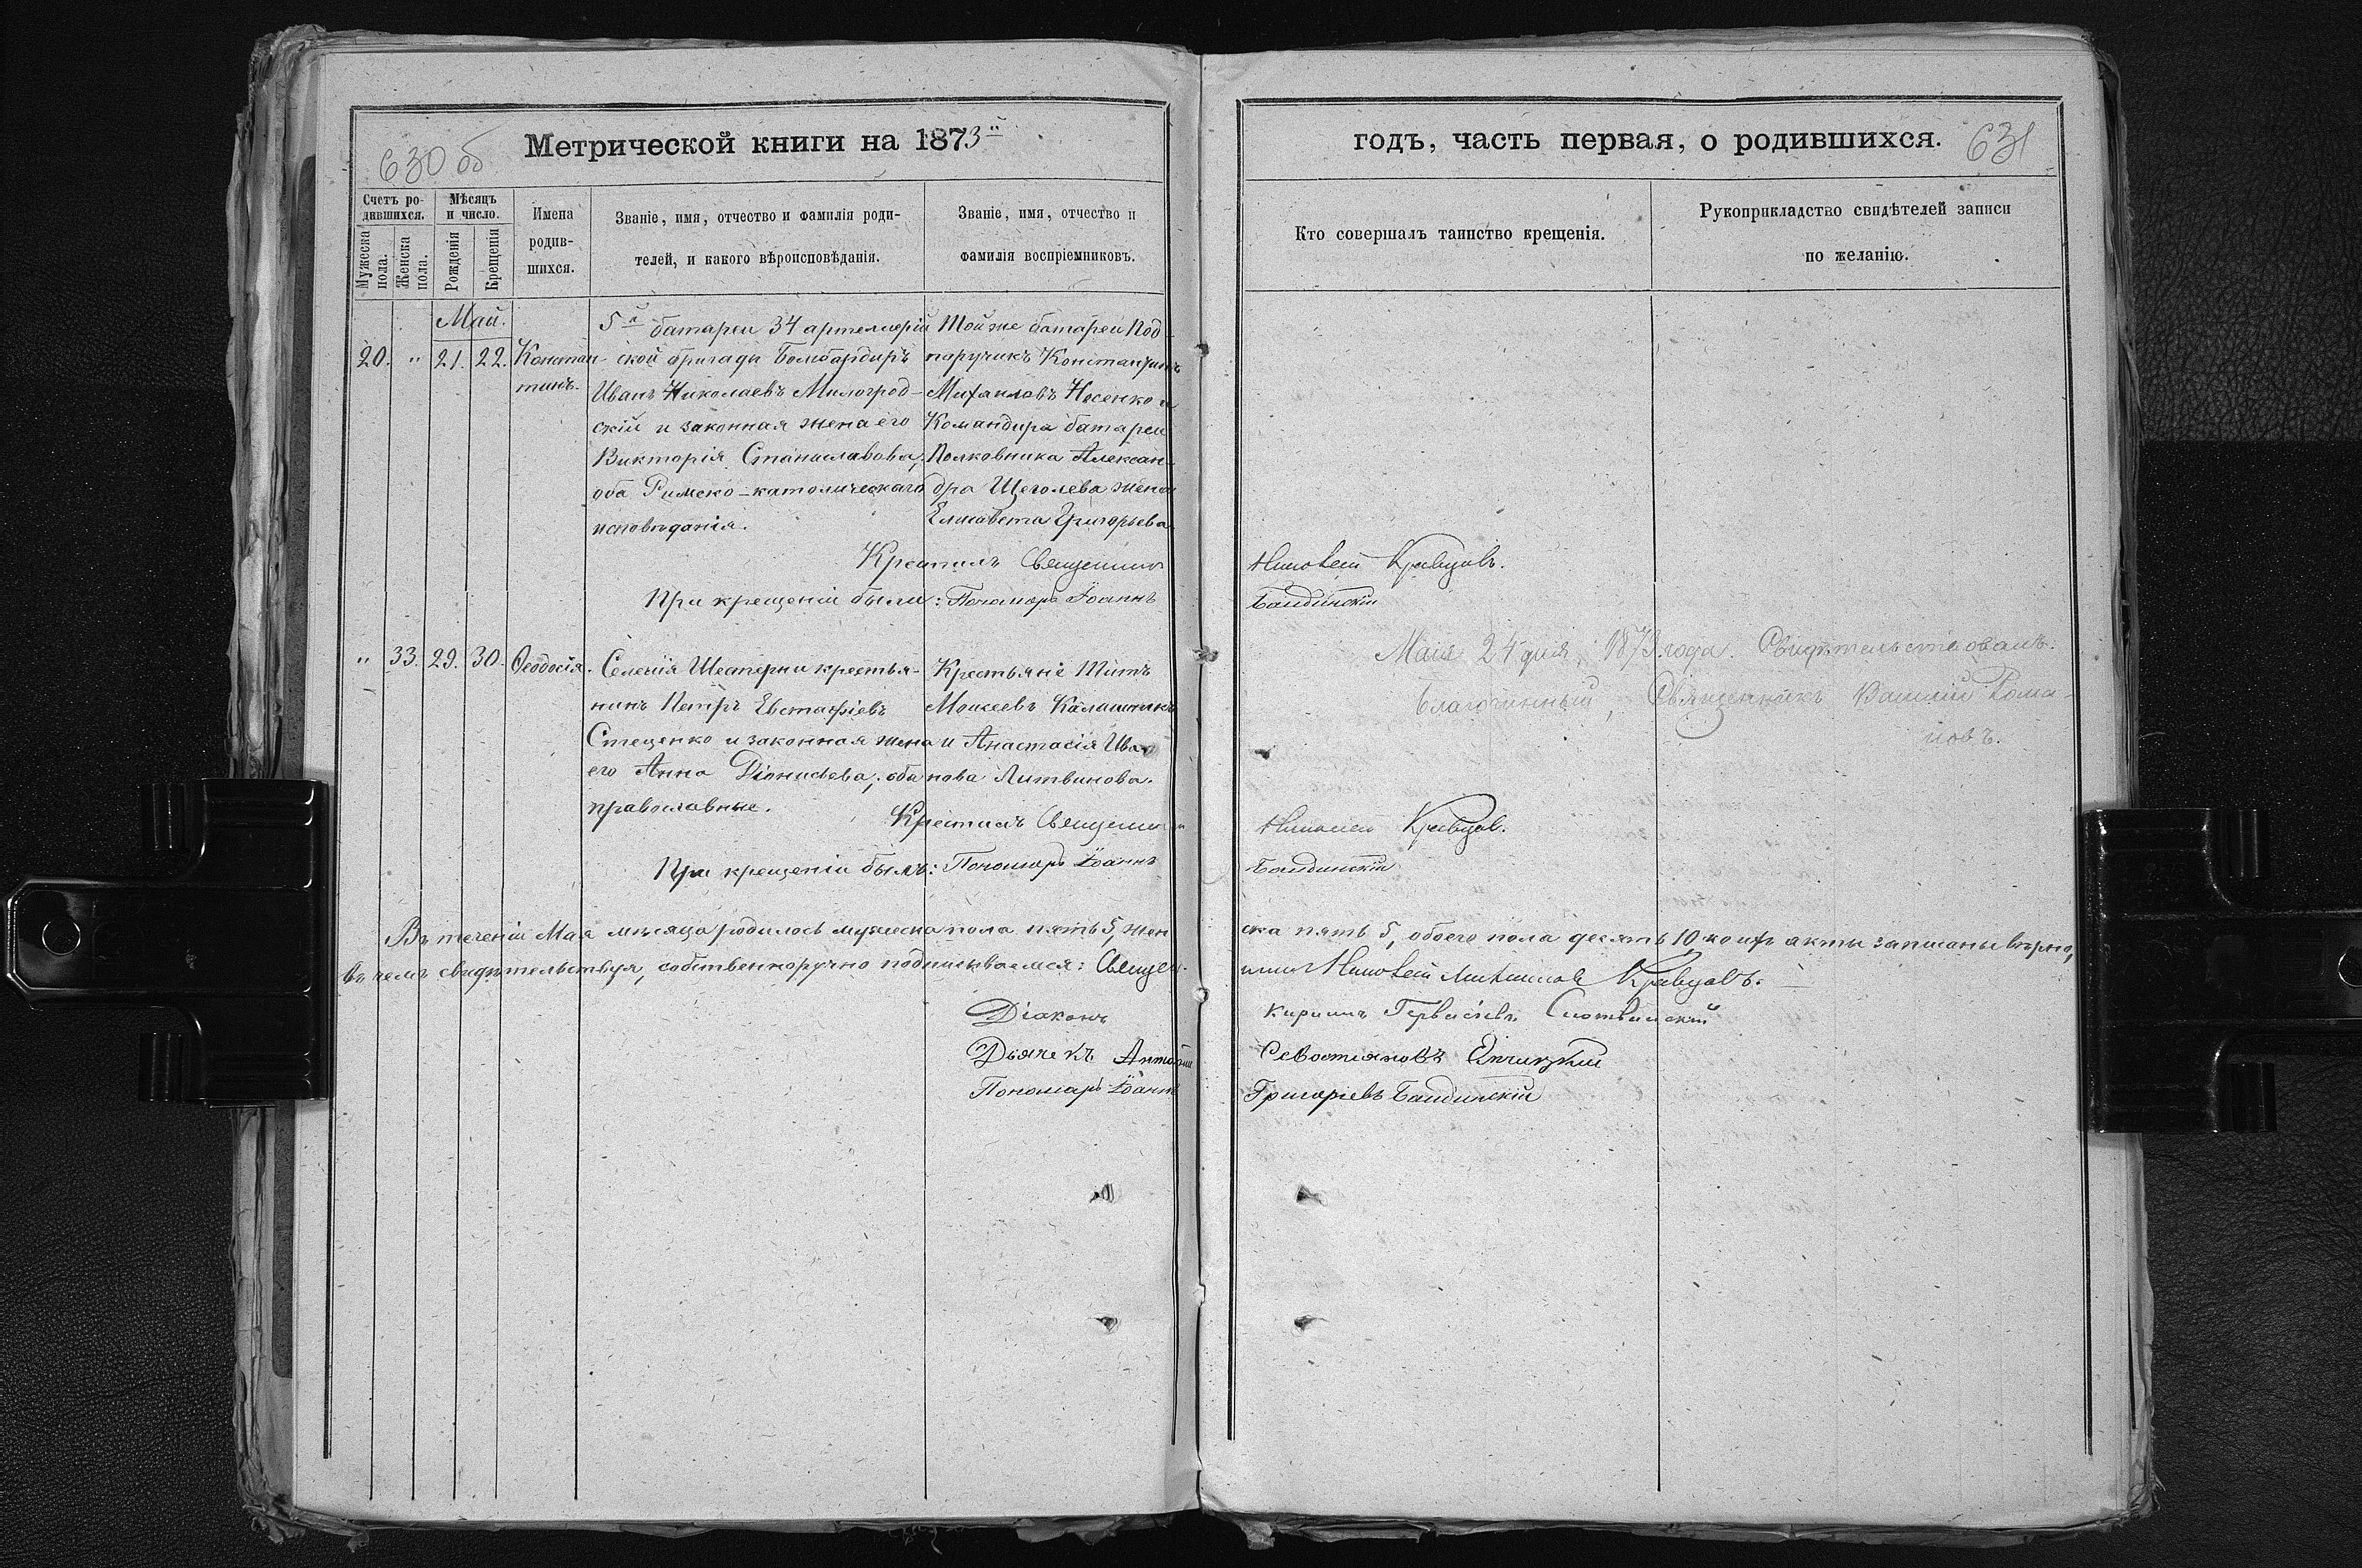 630 об
Метрической книги на 1873й
Счетъ родившихся.
Мѣсяцъ и число.
Мужеска пола.
Женска пола.
Рожденія
Крещенія
Имена родившихся.
Званіе, имя, отчество и фамилія родителей, и какого вѣроисповѣданія.
Званіе, имя, отчество и фамилія воспріемниковъ.
Май.
20. " 21. 22. Констан-
тинъ.
5й батареи 34 артеллерій
ской бригады Бомбардиръ
Иванъ Николаевъ Милоград-
скій и законная жена его
Викторія Станиславова,
оба Римско-католическаго
исповѣданія.
Той же батареи Под-
поручикъ Константинъ
Михаиловъ Носенко и
Командира батареи
Полковника Алексан-
дра Щеголева жена
Елисавета Григорьева
Крестилъ Священник
При крещеніи были: Пономарь Іоаннъ
" 33. 29. 30. Ѳеодосія.
Селенія Шестерни крестья-
нинъ Петръ Евстафіевъ
Стеценко и законная жена
его Анна Діонисьева, оба
православные.
Крестьяне Титъ
Моисеевъ Калашник
и Анастасія Ива-
нова Литвинова.
Крестилъ Священник
При крещеніи былъ: Пономарь Іоаннъ
Въ теченіи Мая мѣсяца родилось мужеска пола пять 5, жен
въ чемъ свидѣтельствуя, собственноручно подписываемся: Священ-
Діаконъ
Дьячекъ Антоній
Пономарь Іоаннъ
годъ, часть первая, о родившихся.
631
Кто совершалъ таинство крещенія.
Рукоприкладство свидѣтелей записи по желанію.
Кравцовъ.
Бандинскій
Маія 24 дня, 1873 года. Свидѣтельствовалъ.
Благочинный, Священникъ Василій Рома-
новъ.
Кравцов.
Бандинскій
ска пять 5, обоего пола десять 10, коихъ акты записаны вѣрно,
Кравцовъ.
Кириллъ
Севостяновъ
Григорьевъ Бандинскій